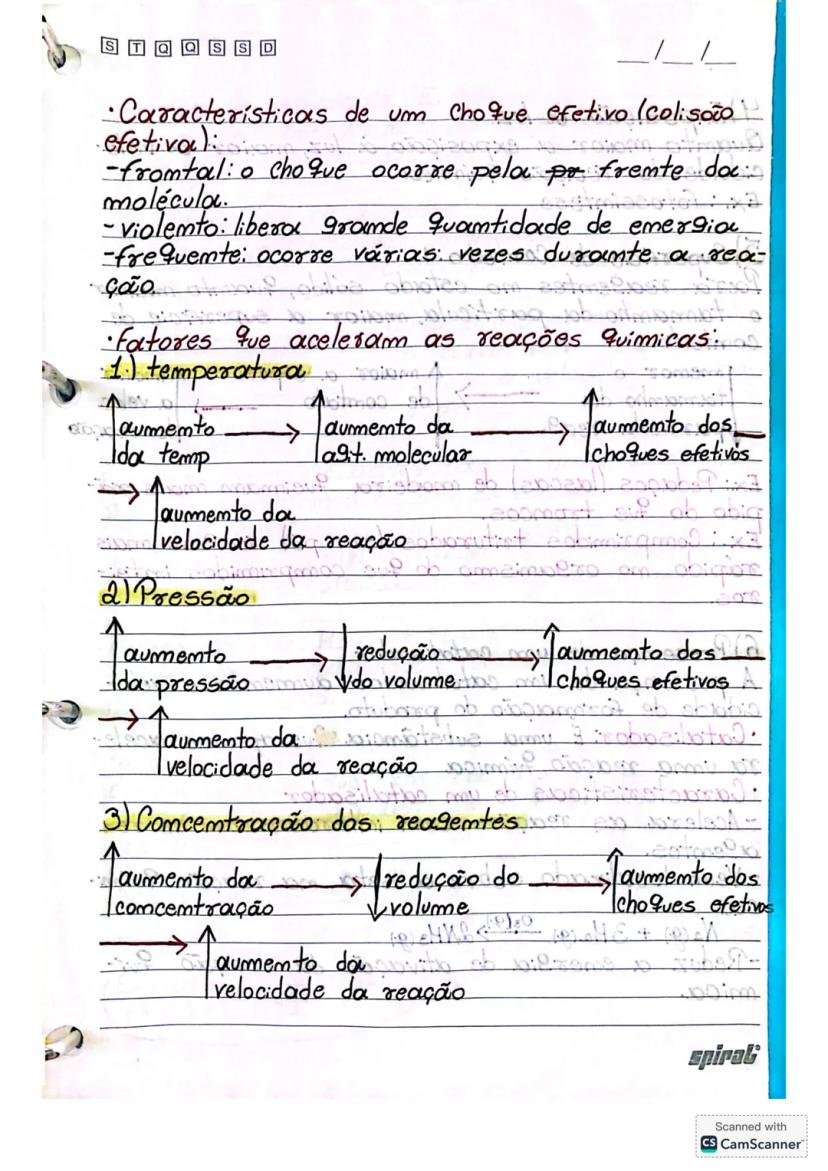 S T Q Q S S D
__/__/__
·Características de um choque efetivo (colisão
efetiva):
-frontal: o choque ocorre pela pr frente da
molécula.
-violento: libera grande quantidade de energia
-frequente: ocorre várias vezes durante a rea-
ção
·Fatores que aceleram as reações químicas:
1.) temperatura
↑ aumento da temp → ↑ aumento da agit. molecular → ↑ aumento dos choques efetivos
→ ↑ aumento da
velocidade da reação
2) Pressão
↑ aumento da pressão → ↓ redução do volume → ↑ aumento dos choques efetivos
→ ↑ aumento da
velocidade da reação
3) Concentração dos reagentes
↑ aumento da concentração → ↓ redução do volume → ↑ aumento dos choques efetivos
→ ↑ aumento da
velocidade da reação
spiral
Scanned with
CS CamScanner